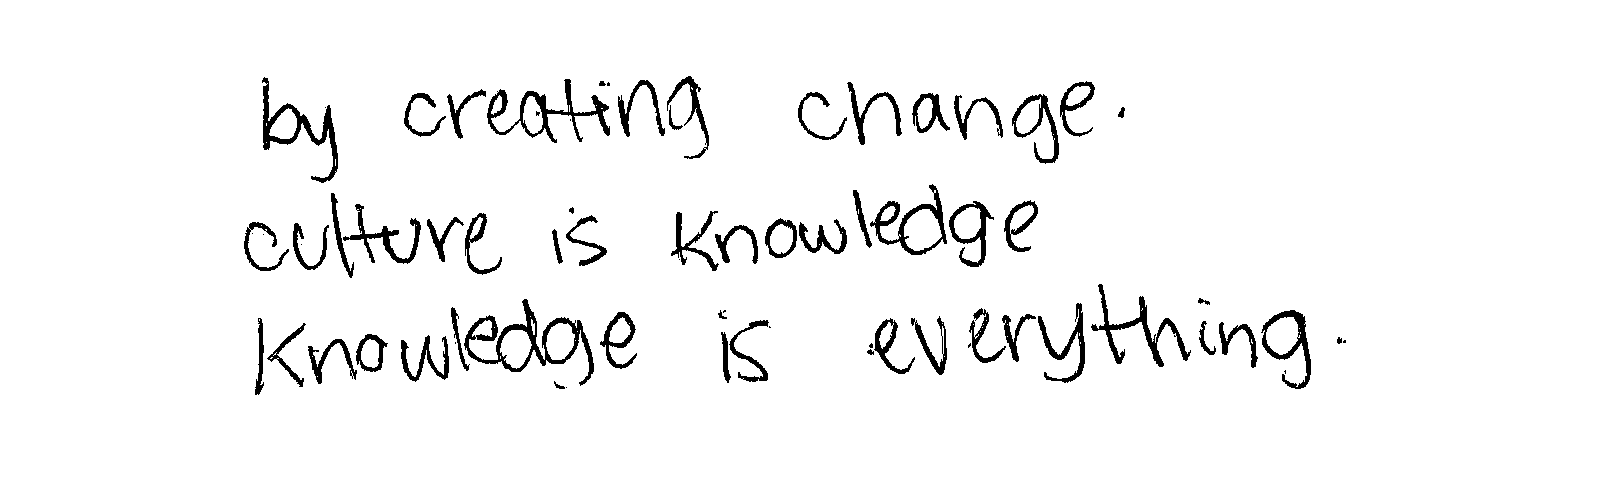 by creating change.
culture is knowledge
Knowledge is everything.